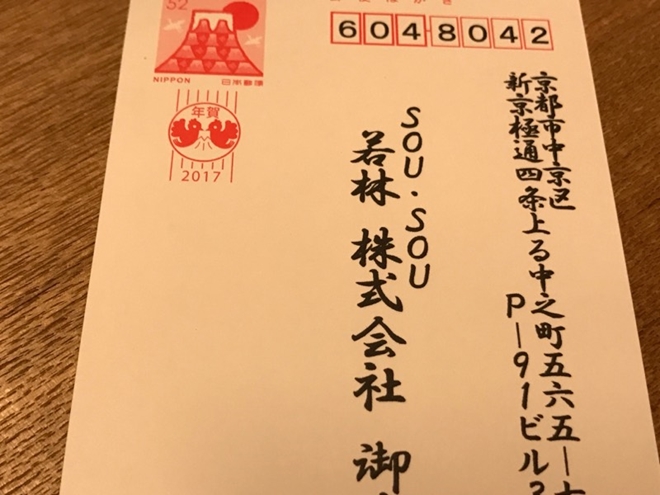 52
NIPPON 日本郵便
年賀
2017
6048042
京都市中京区
新京極通四条上る中之町五六五ー
P－91ビル
SOU・SOU
若林 株式会社 御